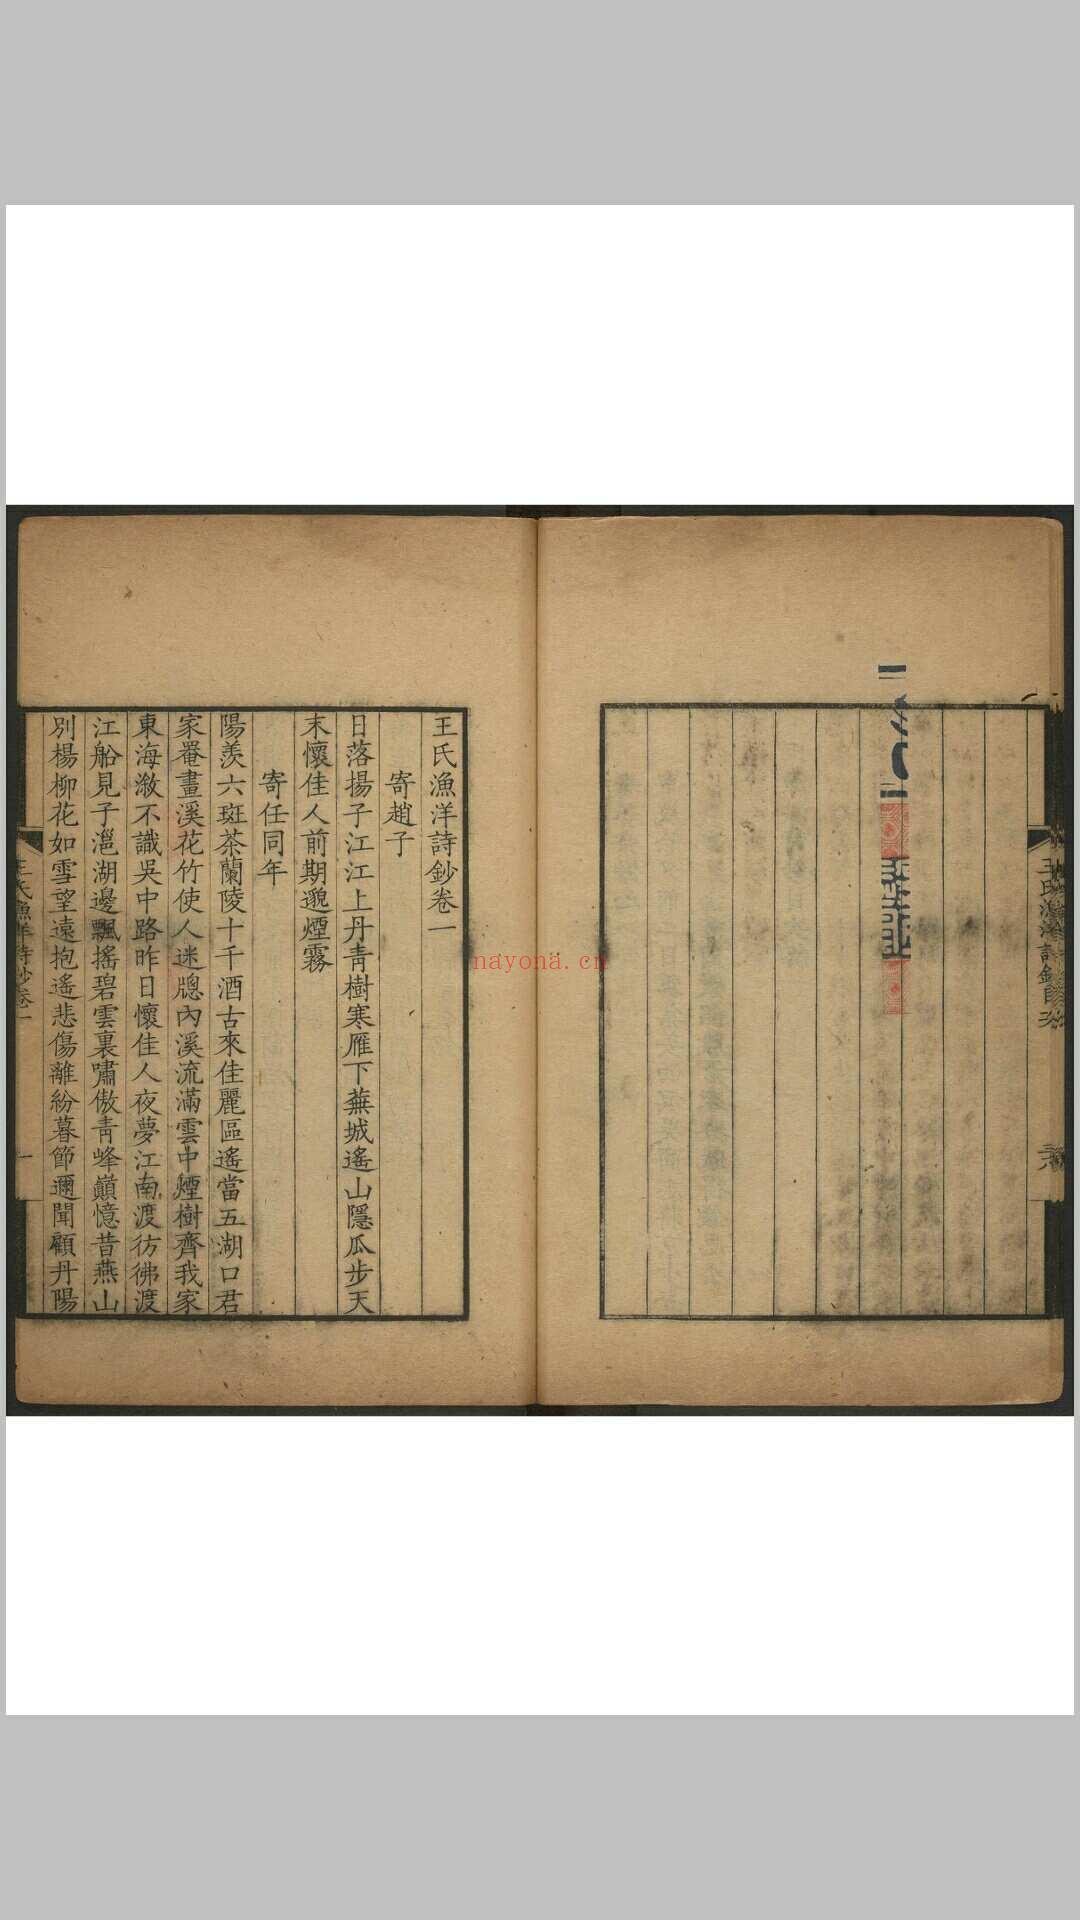 王氏漁洋詩鈔卷一
寄趙子
日落揚子江江上丹青樹寒雁下蕪城遙山隱瓜步天
末懷佳人前期邈煙霧
寄任同年
陽羨六斑茶蘭陵十千酒古來佳麗區遙當五湖口君
家罨畫溪花竹使人迷牕內溪流滿雲中煙樹齊我家
東海澨不識吳中路昨日懷佳人夜夢江南渡彷彿渡
江船見子滆湖邊飄搖碧雲裏嘯傲青峰巔憶昔燕山
別楊柳花如雪望遠抱遙悲傷離紛暮節邇聞顧丹陽
王氏漁洋詩鈔卷一
一
nayona.cn